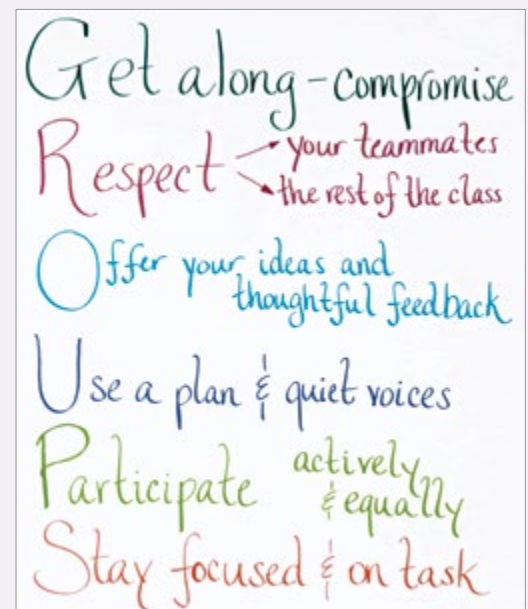 Get along - compromise
Respect your teammates
the rest of the class
Offer your ideas and
thoughtful feedback
Use a plan & quiet voices
Participate actively
& equally
Stay focused & on task